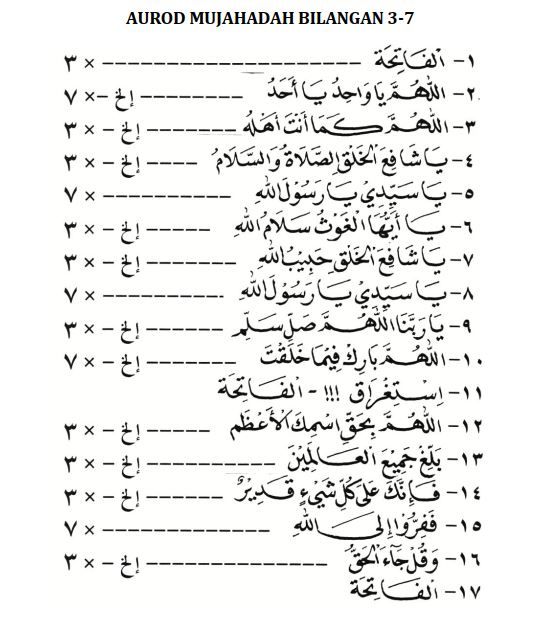 AUROD MUJAHADAH BILANGAN 3-7
١- الْفَاتِحَةَ ---------------------- × ٣
٢- اَللّٰهُمَّ يَا وَاحِدُ يَا أَحَدُ --------- إلخ -× ٧
٣- اَللّٰهُمَّ كَمَا أَنْتَ أَهْلُهُ ------- إلخ - × ٣
٤- يَا شَافِعَ الْخَلْقِ الصَّلَاةُ وَالسَّلَامُ ---- إلخ - × ٣
٥- يَا سَيِّدِيْ يَا رَسُوْلَ اللهِ ----------- × ٧
٦- يَا أَيُّهَا الْغَوْثُ سَلَامُ اللهِ ------ إلخ - × ٣
٧- يَا شَافِعَ الْخَلْقِ حَبِيْبَ اللهِ ------- إلخ - × ٣
٨- يَا سَيِّدِيْ يَا رَسُوْلَ اللهِ ---------- × ٧
٩- يَا رَبَّنَا اللّٰهُمَّ صَلِّ سَلِّمِ ------ إلخ - × ٣
١٠- اَللّٰهُمَّ بَارِكْ فِيْمَا خَلَقْتَ ------- إلخ - × ٧
١١- اِسْتِغْرَاقْ !!! - الْفَاتِحَةَ
١٢- اَللّٰهُمَّ بِحَقِّ اسْمِكَ الْأَعْظَمِ ------ إلخ - × ٣
١٣- بَلِّغْ جَمِيْعَ الْعَالَمِيْنَ ---------- إلخ - × ٣
١٤- فَإِنَّكَ عَلَى كُلِّ شَيْءٍ قَدِيْرٌ ------ إلخ - × ٣
١٥- فَفِرُّوْا إِلَى اللهِ -------------- × ٧
١٦- وَقُلْ جَاءَ الْحَقُّ --------------- إلخ - × ٣
١٧- الْفَاتِحَةَ